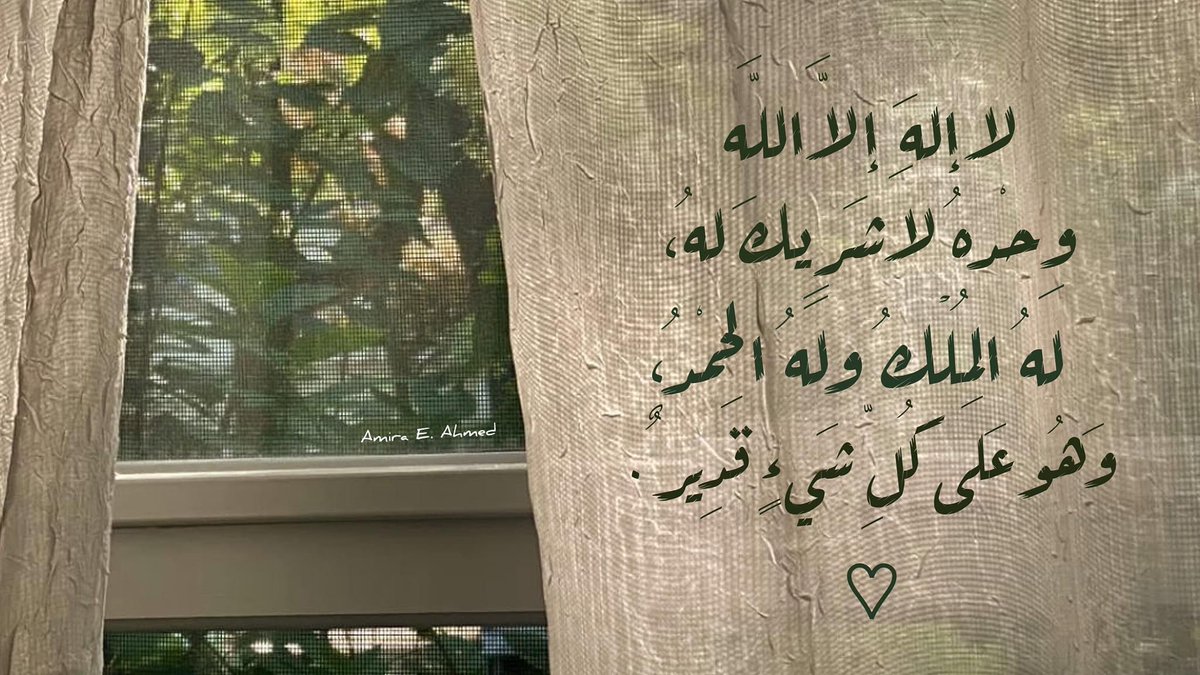 لا إلهَ إلاَّ اللَّه
وِحْدهُ لاشَرِيكَ لهُ،
لهُ المُلْكُ ولهُ الحَمْدُ،
وَهُو عَلَى كُلِّ شَيءٍ قَدِيرٌ .
Amira E. Ahmed